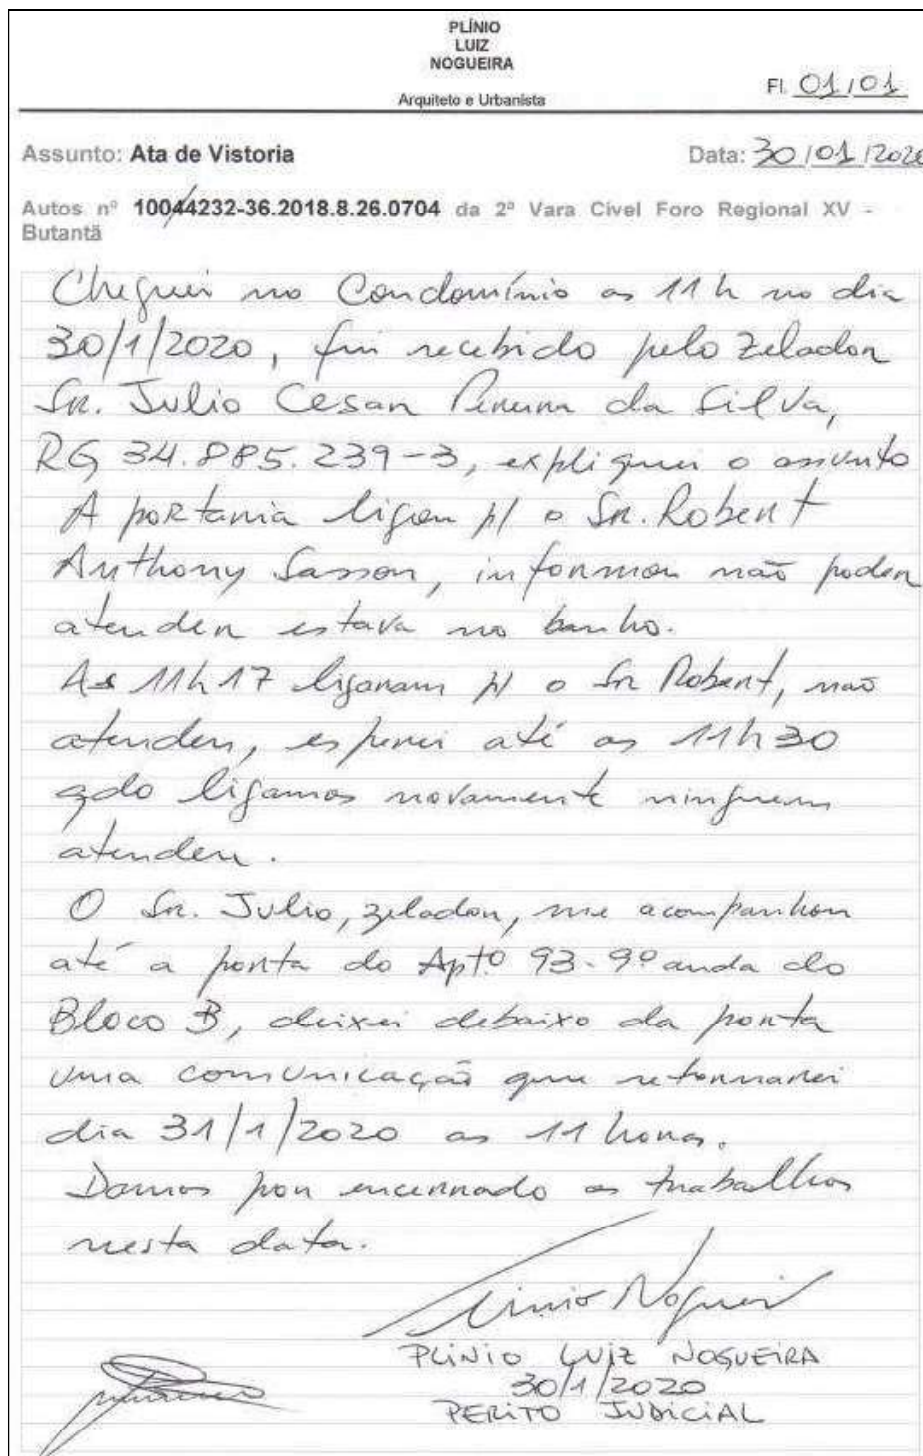 PLÍNIO
LUIZ
NOGUEIRA
Arquiteto e Urbanista
Fl. 01/01
Assunto: Ata de Vistoria
Data: 30/01/2020
Autos nº 10044232-36.2018.8.26.0704 da 2ª Vara Cível Foro Regional XV -
Butantã
Cheguei no Condomínio as 11h no dia
30/1/2020, fui recebido pelo zelador
Sr. Julio Cesar Pereira da Silva,
RG 34.885.239-3, expliquei o assunto
A portaria ligou p/ o Sr. Robert
Anthony Sasson, informou não poder
atender estava no banho.
As 11h17 ligaram p/ o Sr Robert, não
atendeu, esperei até as 11h30
qdo ligamos novamente ninguem
atendeu.
O Sr. Julio, zelador, me acompanhou
até a porta do Aptº 93-9º anda do
Bloco B, deixei debaixo da porta
uma comunicação que retornarei
dia 31/1/2020 as 11 horas.
Damos por encerrado os trabalhos
nesta data.
Plinio Nogueira
PLINIO LUIZ NOGUEIRA
30/1/2020
PERITO JUDICIAL